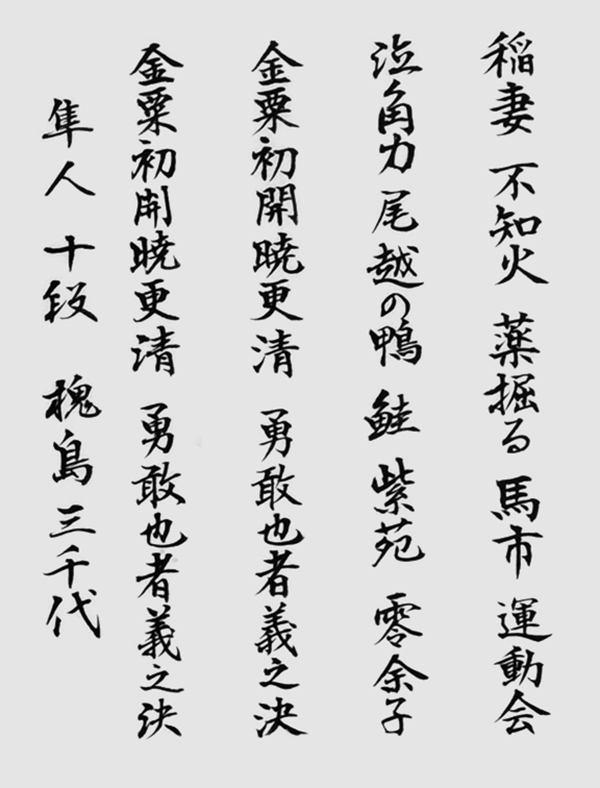 稲妻 不知火 薬掘る 馬市 運動会
泣角力 尾越の鴨 鮭 紫苑 零余子
金粟初開暁更清 勇敢也者義之決
金粟初開暁更清 勇敢也者義之決
隼人 十段 槐島三千代